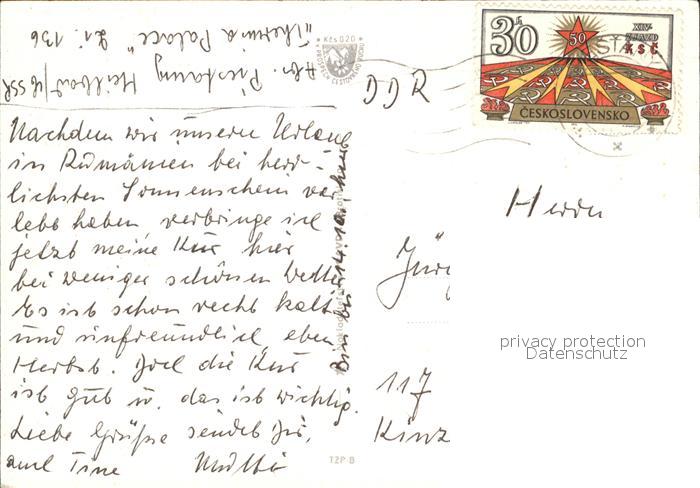 Abs. Piestany Heilbad/ČSSR
"Thermia Palace" Zi. 136
Kčs 0,20
Nachdem wir unseren Urlaub
in Rumänien bei herr-
lichsten Sonnenschein ver
lebt haben, verbringe ich
jetzt meine Kur hier
bei weniger schönen Wetter
Es ist schon recht kalt
und unfreundlich, eben
Herbst. Doch die Kur
ist gut u. das ist wichtig.
Liebe Grüße sendet Dir,
auch Tine
Bin bis 14.10. hier
TZP-B
30h
50
XIV.
SJEZD
KSČ
ČESKOSLOVENSKO
DDR
Herrn
Jürg
117
Kinz
privacy protection
Datenschutz